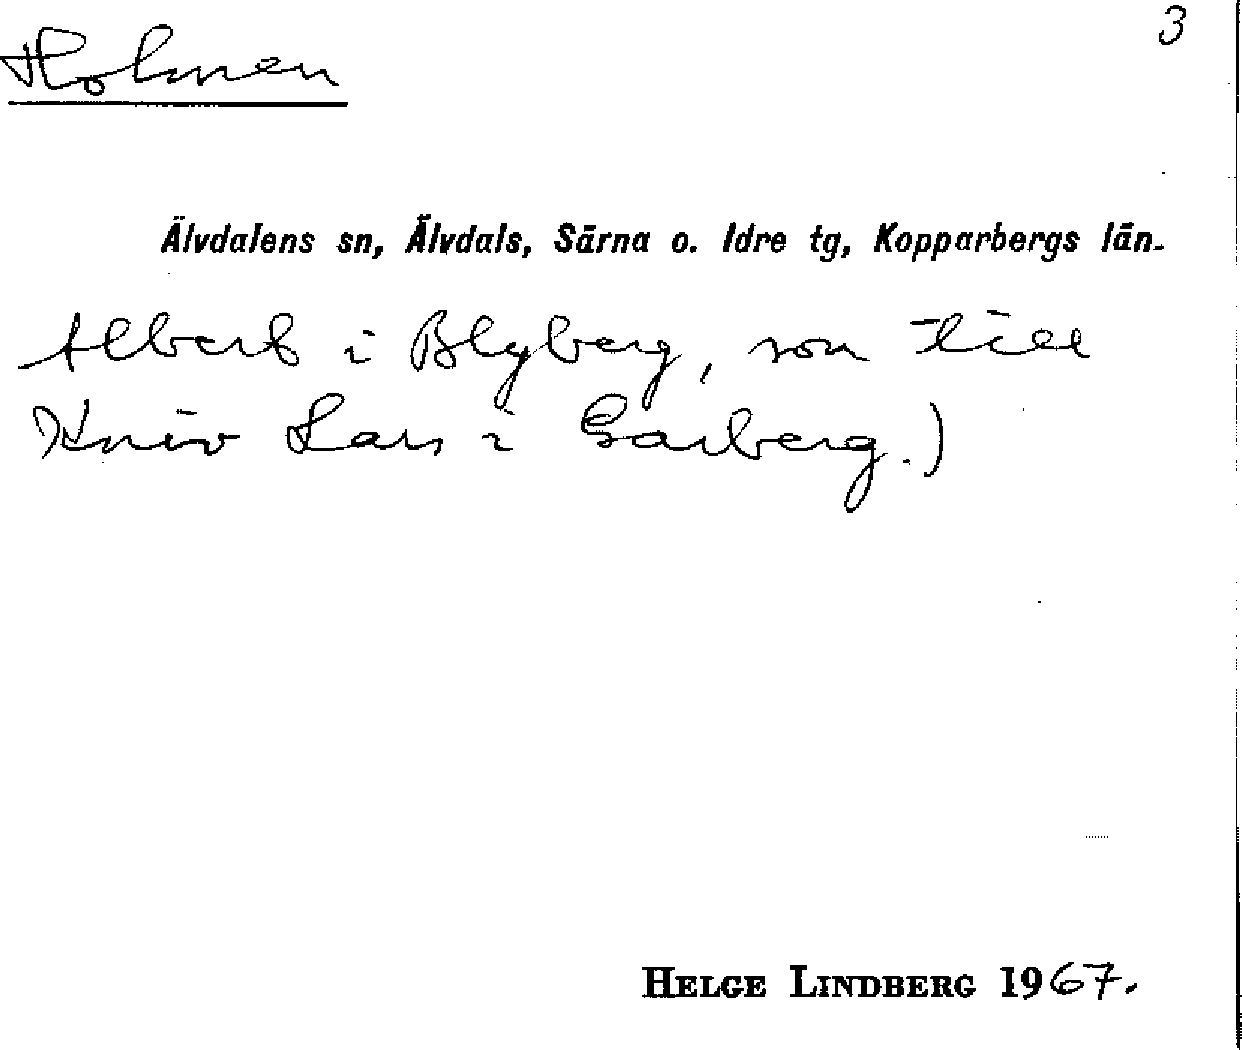 3
Holmen
Älvdalens sn, Älvdals, Särna o. Idre tg, Kopparbergs län.
Albert i Blyberg, son till
Kniv Lars i Garberg.)
HELGE LINDBERG 1967.